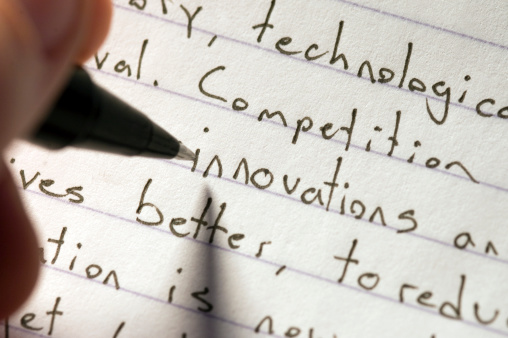 ory, technologica
val. Competition
innovations an
ives better, to redu
ation is
et